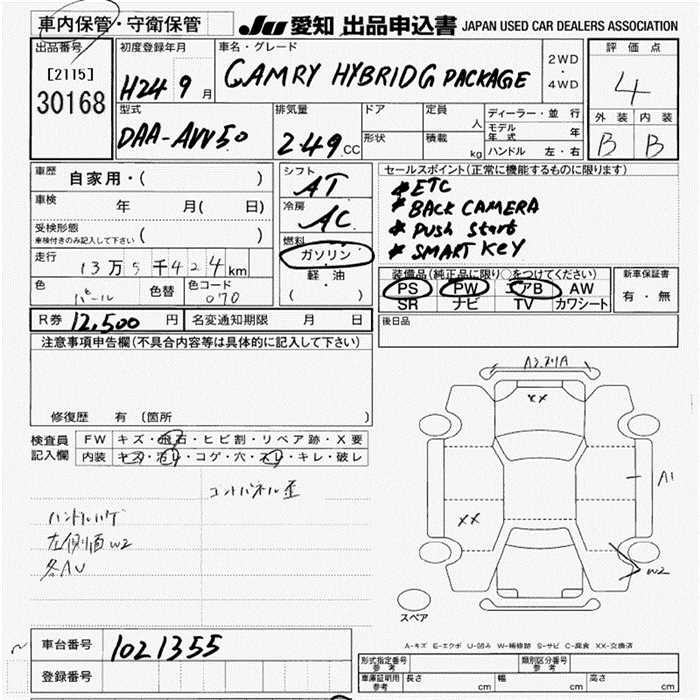 車内保管・守衛保管
JU 愛知 出品申込書 JAPAN USED CAR DEALERS ASSOCIATION
出品番号
[2115]
30168
初度登録年月
H24 9月
車名・グレード
CAMRY HYBRID G PACKAGE
2WD
・
4WD
評価点
4
外装 内装
B B
型式
DAA-AVV50
排気量
249.CC
ドア
形状
定員 人
積載 kg
ディーラー・並行
モデル年式 年
ハンドル 左・右
車歴 自家用・( )
車検 年 月( 日)
受検形態 ( )
車検付きのみ記入して下さい
走行 13万5千424km
色 パール
色替
色コード 070
シフト AT
冷房 AC
燃料
ガソリン
軽油
( )
セールスポイント(正常に機能するものに限ります)
* ETC
* BACK CAMERA
* PUSH Start
* SMART KEY
装備品(純正品に限り○をつけてください)
PS PW エアB AW
SR ナビ TV カワシート
新車保証書
有・無
R券 12,500円
名変通知期限 月 日
後日品
注意事項申告欄(不具合内容等は具体的に記入して下さい)
修復歴 有 (箇所 )
検査員記入欄
FW キズ・飛石・ヒビ割・リペア跡・X要
内装 キズ・汚レ・コゲ・穴・スレ・キレ・破レ
ハンドルハゲ
左側面W2
各AU
XX
A1
XX
W2
スペア
A-キズ E-エクボ U-凹み W-補修跡 S-サビ C-腐食 XX-交換済
車台番号 1021355
登録番号
形式指定番号 参考
類別区分番号 参考
車庫証明用 参考 長さ cm 幅 cm 高さ cm